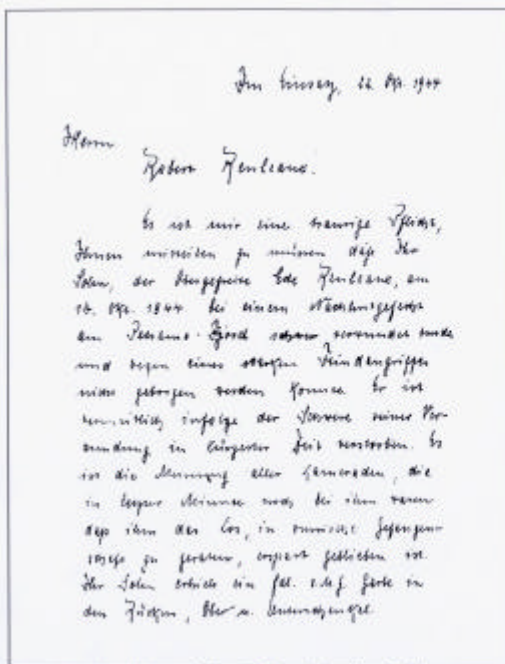 Im Einsatz, 22. Okt. 1944
Herrn
Robert
Es ist mir eine traurige Pflicht,
Ihnen mitteilen zu müssen daß Ihr
Sohn, der Obergefreite am
Okt. 1944 bei einem Nachhutgefecht
am Petsamo-Fjord schwer verwundet wurde
und wegen eines starken Feindangriffes
nicht geborgen werden konnte. Er ist
vermutlich infolge der Schwere seiner Ver-
wundung in kürzester Zeit verstorben. Es
ist die Meinung aller Kameraden, die
in letzter Minute noch bei ihm waren
daß ihm das Los, in russische Gefangen-
schaft zu geraten, erspart geblieben ist.
Ihr Sohn erhielt ein Garbe in
den Rücken, Ober u. Unterschenkel